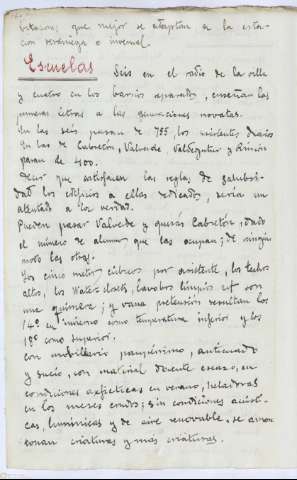 bitacion; que mejor se adaptan a la esta-
cion veraniega o invernal.
Escuelas Seis en el radio de la villa
y cuatro en los barrios apartados, enseñan las
primeras letras a las generaciones novatas.
En las seis pasan de 785 los asistentes diarios
En las de Cabretón, Valverde Valdegutur y Rincón
pasan de 400.
Decir que satisfacen las reglas de salubri-
dad los edificios a ellas dedicados, sería un
atentado a la verdad.
Pueden pasar Valverde y quizás Cabretón, dado
el número de alumnos que las ocupan; de ningún
modo las otras.
Los cinco metros cúbicos por asistente, los techos
altos, los Water-closets, lavabos limpios son
una quimera; y vana pretensión resultan los
14º en invierno como temperatura inferior y los
18º como superior.
Con mobiliario paupérrimo, anticuado
y sucio, con material docente escaso, en
condiciones asfícticas en verano, heladoras
en los meses crudos; sin condiciones acústi-
cas, lumínicas y de aire renovable, se amon-
tonan criaturas y mas criaturas.